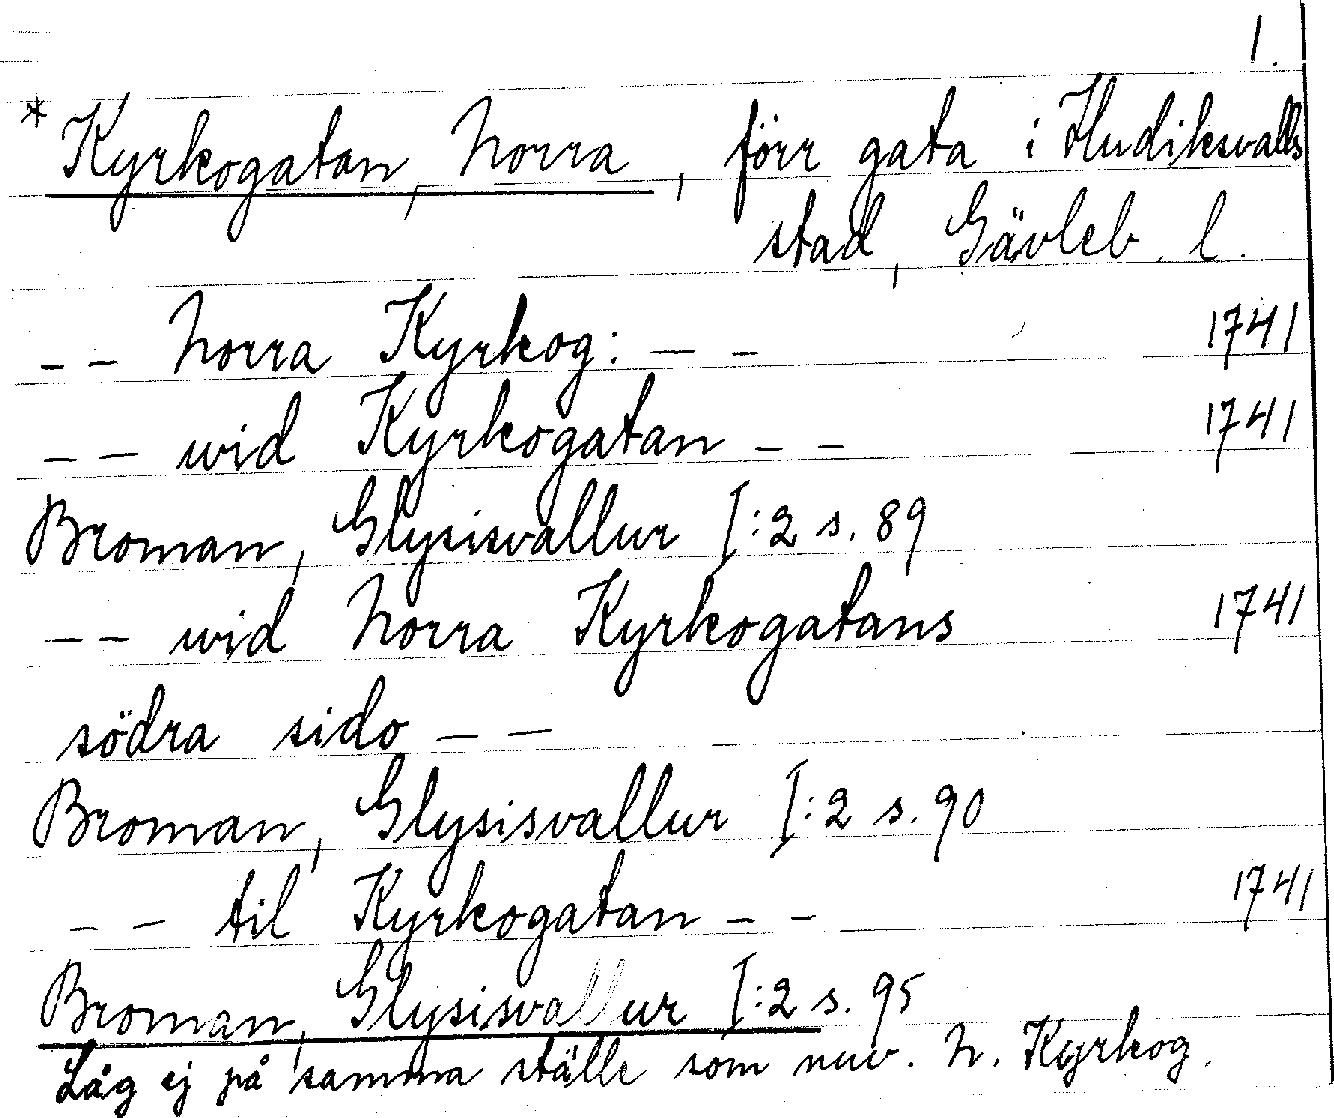 1.
* Kyrkogatan, Norra, förr gata i Hudiksvalls
stad, Gävleb. l.
-- Norra Kyrkog: -- 1741
-- wid Kyrkogatan -- 1741
Broman, Glysisvallur I:2 s. 89
-- wid Norra Kyrkogatans 1741
södra sido --
Broman, Glysisvallur I:2 s. 90
-- til Kyrkogatan -- 1741
Broman, Glysisvallur I:2 s. 95
Låg ej på samma ställe som nuv. N. Kyrkog.